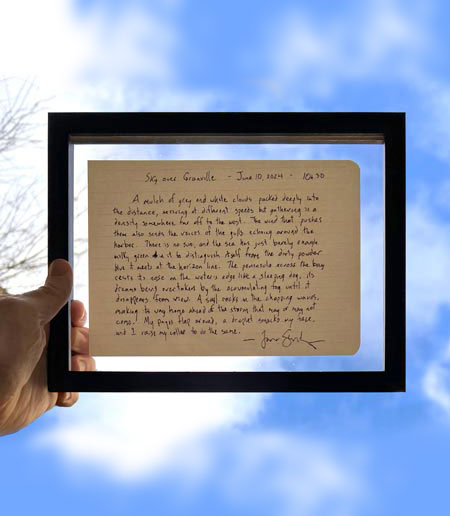 Sky over Granville - June 10, 2024 - 18h30
A mulch of grey and white clouds packed deeply into
the distance, moving at different speeds but gathering in a
density somewhere far off to the west. The wind that pushes
them also sends the voices of the gulls echoing around the
harbor. There is no sun, and the sea has just barely enough
milky green in it to distinguish itself from the dirty powder
blue it meets at the horizon line. The peninsula across the bay
rests its nose on the water's edge like a sleeping dog, its
drama being overtaken by the accumulating fog until it
disappears from view. A sail rocks in the chopping waves,
making its way home ahead of the storm that may or may not
come. My pages flap around, a droplet smacks my face,
and I raise my collar to do the same.